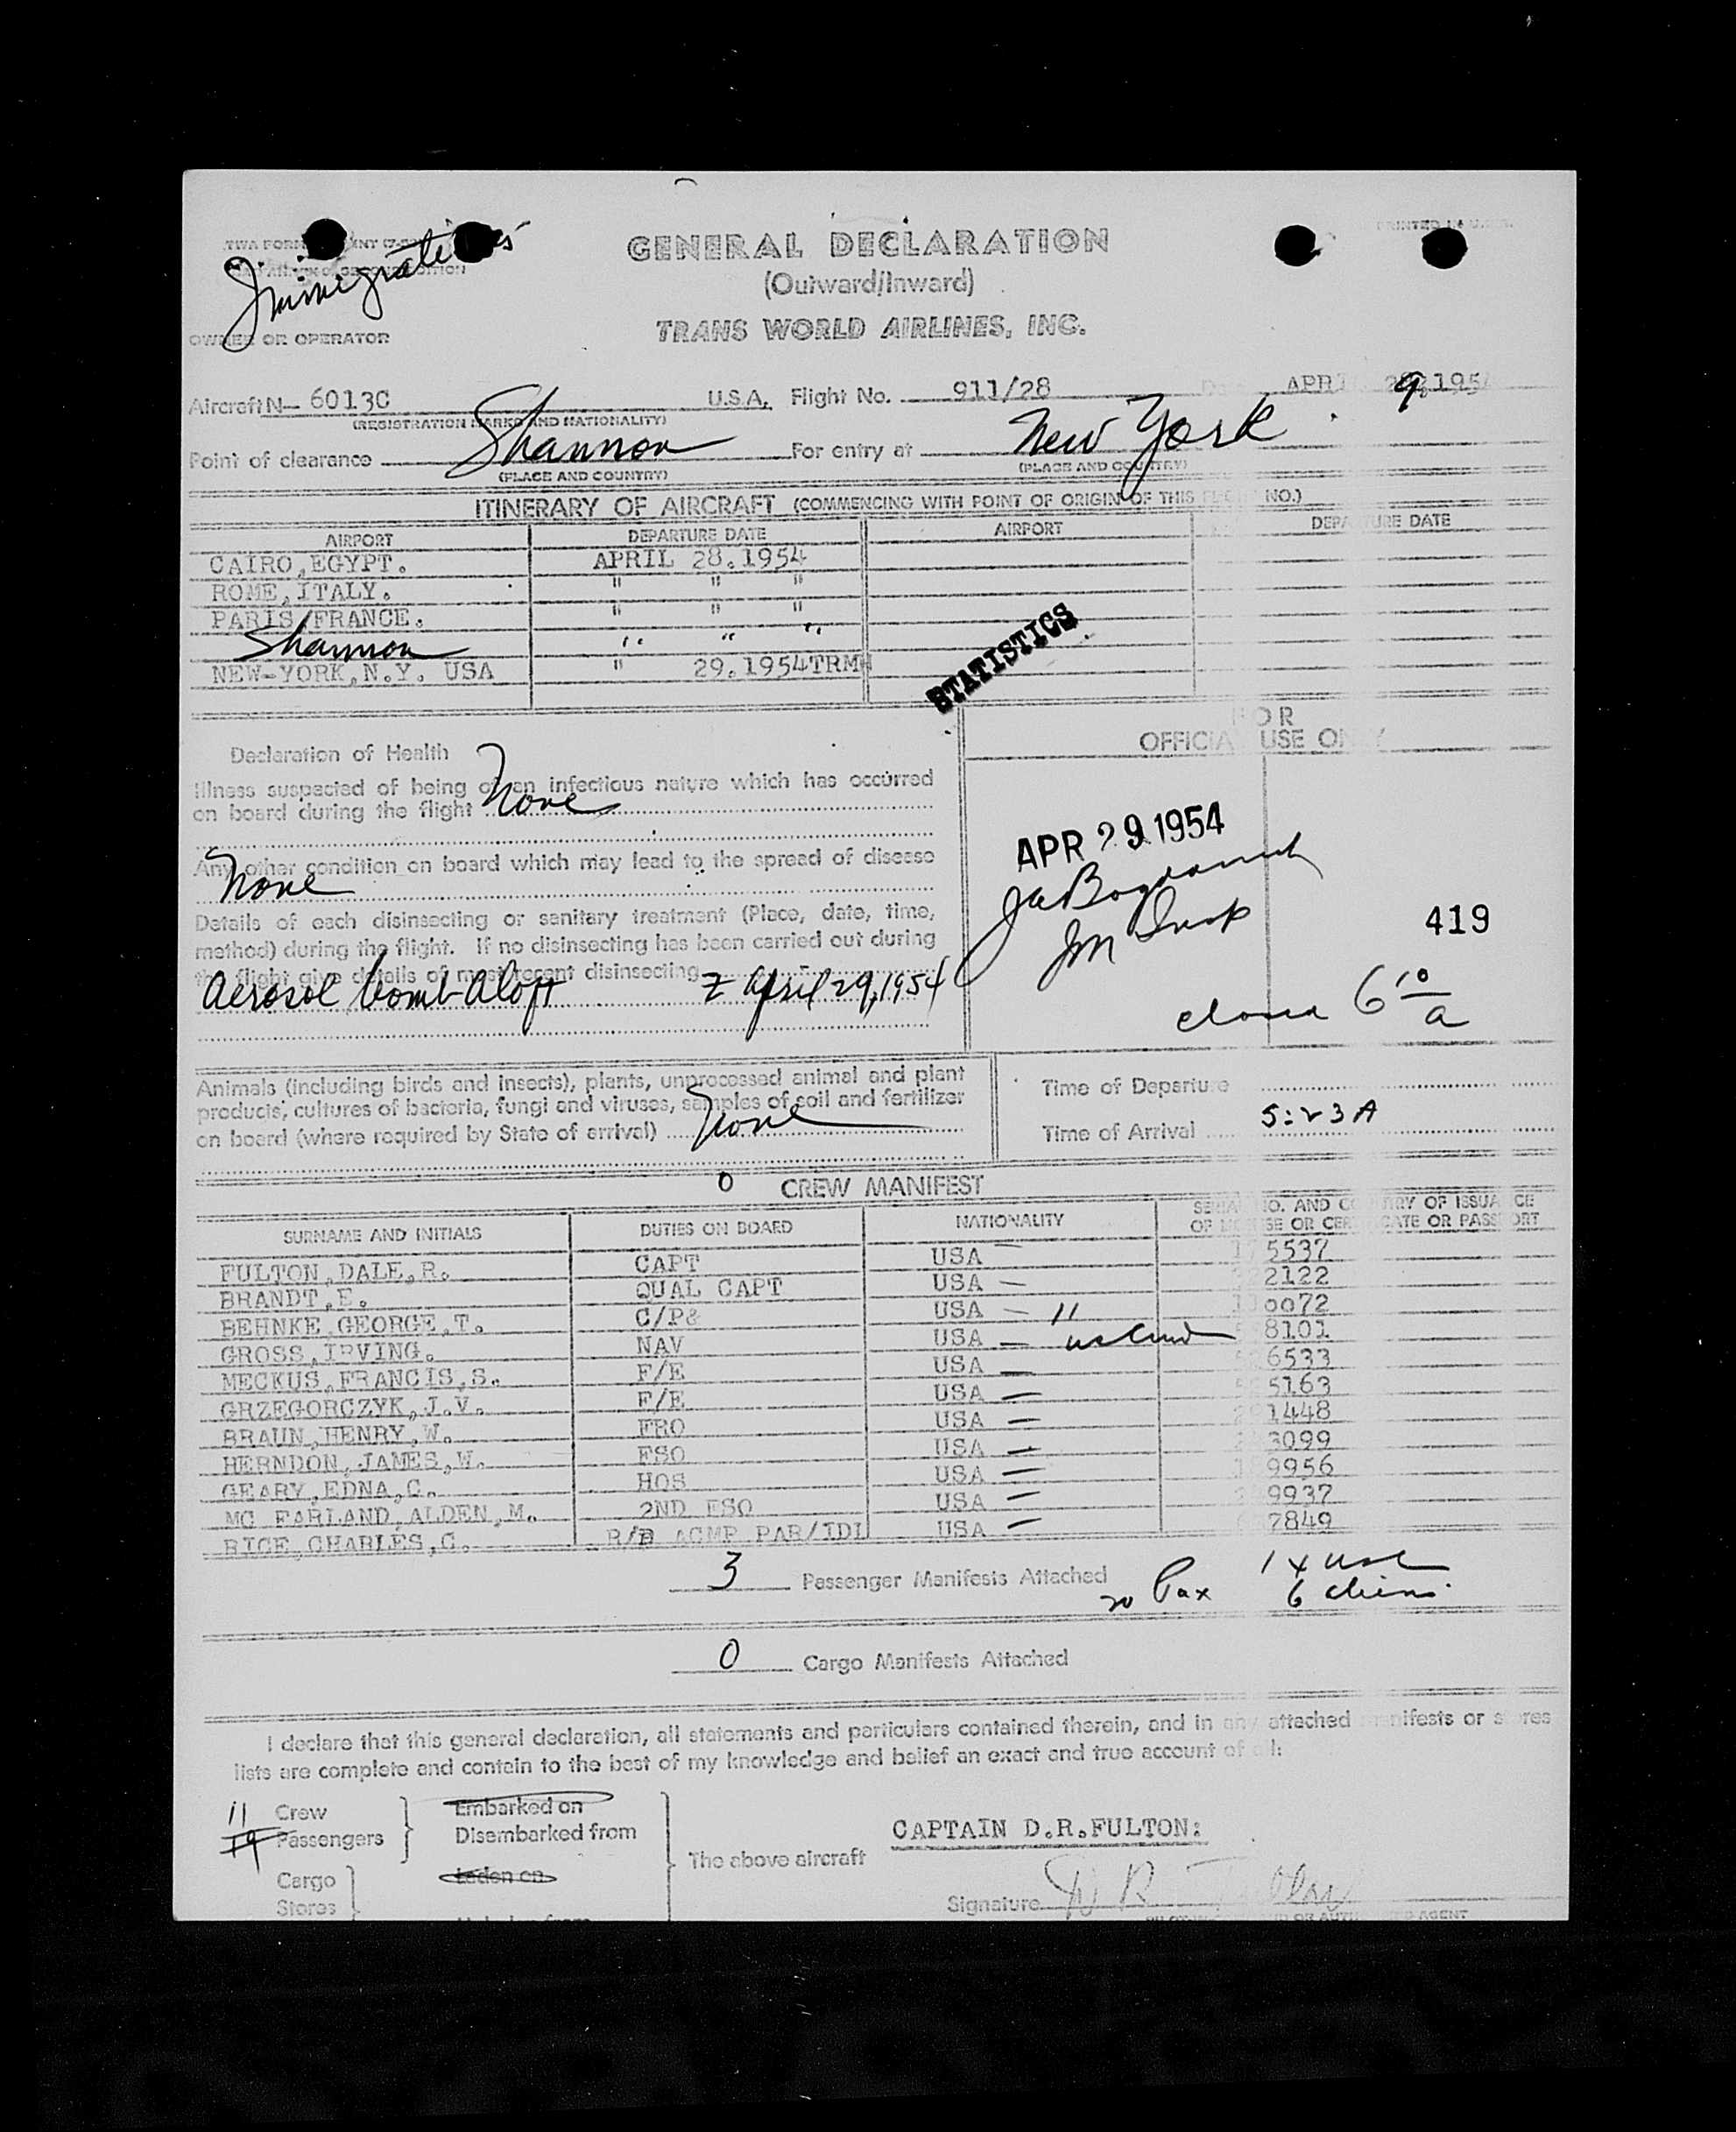 Immigration
PRINTED IN U.S.A.
GENERAL DECLARATION
(Outward/Inward)
TRANS WORLD AIRLINES, INC.
OWNER OR OPERATOR
Aircraft N- 6013C U.S.A. Flight No. 911/28 APR 29,195
(REGISTRATION MARKS AND NATIONALITY)
Point of clearance Shannon For entry at New York
(PLACE AND COUNTRY) (PLACE AND COUNTRY)
ITINERARY OF AIRCRAFT (COMMENCING WITH POINT OF ORIGIN OF THIS FLIGHT NO.)
AIRPORT DEPARTURE DATE AIRPORT DEPARTURE DATE
CAIRO,EGYPT. APRIL 28.1954
ROME,ITALY. " " "
PARIS/FRANCE. " " "
Shannon " " "
NEW-YORK,N.Y. USA " 29.1954TRM
STATISTICS
FOR
OFFICIAL USE ONLY
Declaration of Health
Illness suspected of being of an infectious nature which has occurred
on board during the flight None
Any other condition on board which may lead to the spread of disease
None
Details of each disinsecting or sanitary treatment (Place, date, time,
method) during the flight. If no disinsecting has been carried out during
the flight give details of most recent disinsecting
Aerosol bomb Aloft Z April 29,1954
APR 29 1954
419
closed 6 10 a
Animals (including birds and insects), plants, unprocessed animal and plant
products, cultures of bacteria, fungi and viruses, samples of soil and fertilizer
on board (where required by State of arrival) None
Time of Departure
Time of Arrival 5:23A
0 CREW MANIFEST
SURNAME AND INITIALS DUTIES ON BOARD NATIONALITY SERIAL NO. AND COUNTRY OF ISSUANCE
OF LICENSE OR CERTIFICATE OR PASSPORT
FULTON,DALE,R. CAPT USA - 5537
BRANDT,E. QUAL CAPT USA - 2122
BEHNKE,GEORGE,T. C/P& USA - 11 0072
GROSS,IRVING. NAV USA - 8101
MECKUS,FRANCIS,S. F/E USA - 6533
GRZEGORCZYK,J.V. F/E USA - 5163
BRAUN,HENRY,W. FRO USA - 1448
HERNDON,JAMES,W. FSO USA - 3099
GEARY,EDNA,C. HOS USA - 9956
MC FARLAND,ALDEN,M. 2ND FSO USA - 9937
RICE,CHARLES,C. R/B ACMP PAR/IDL USA - 7849
3 Passenger Manifests Attached 20 Pax 14 usc
6 aliens
0 Cargo Manifests Attached
I declare that this general declaration, all statements and particulars contained therein, and in any attached manifests or stores
lists are complete and contain to the best of my knowledge and belief an exact and true account of all:
11 Crew Embarked on
19 Passengers Disembarked from
The above aircraft
CAPTAIN D.R.FULTON:
Cargo Laden on
Stores
Signature D R Fulton